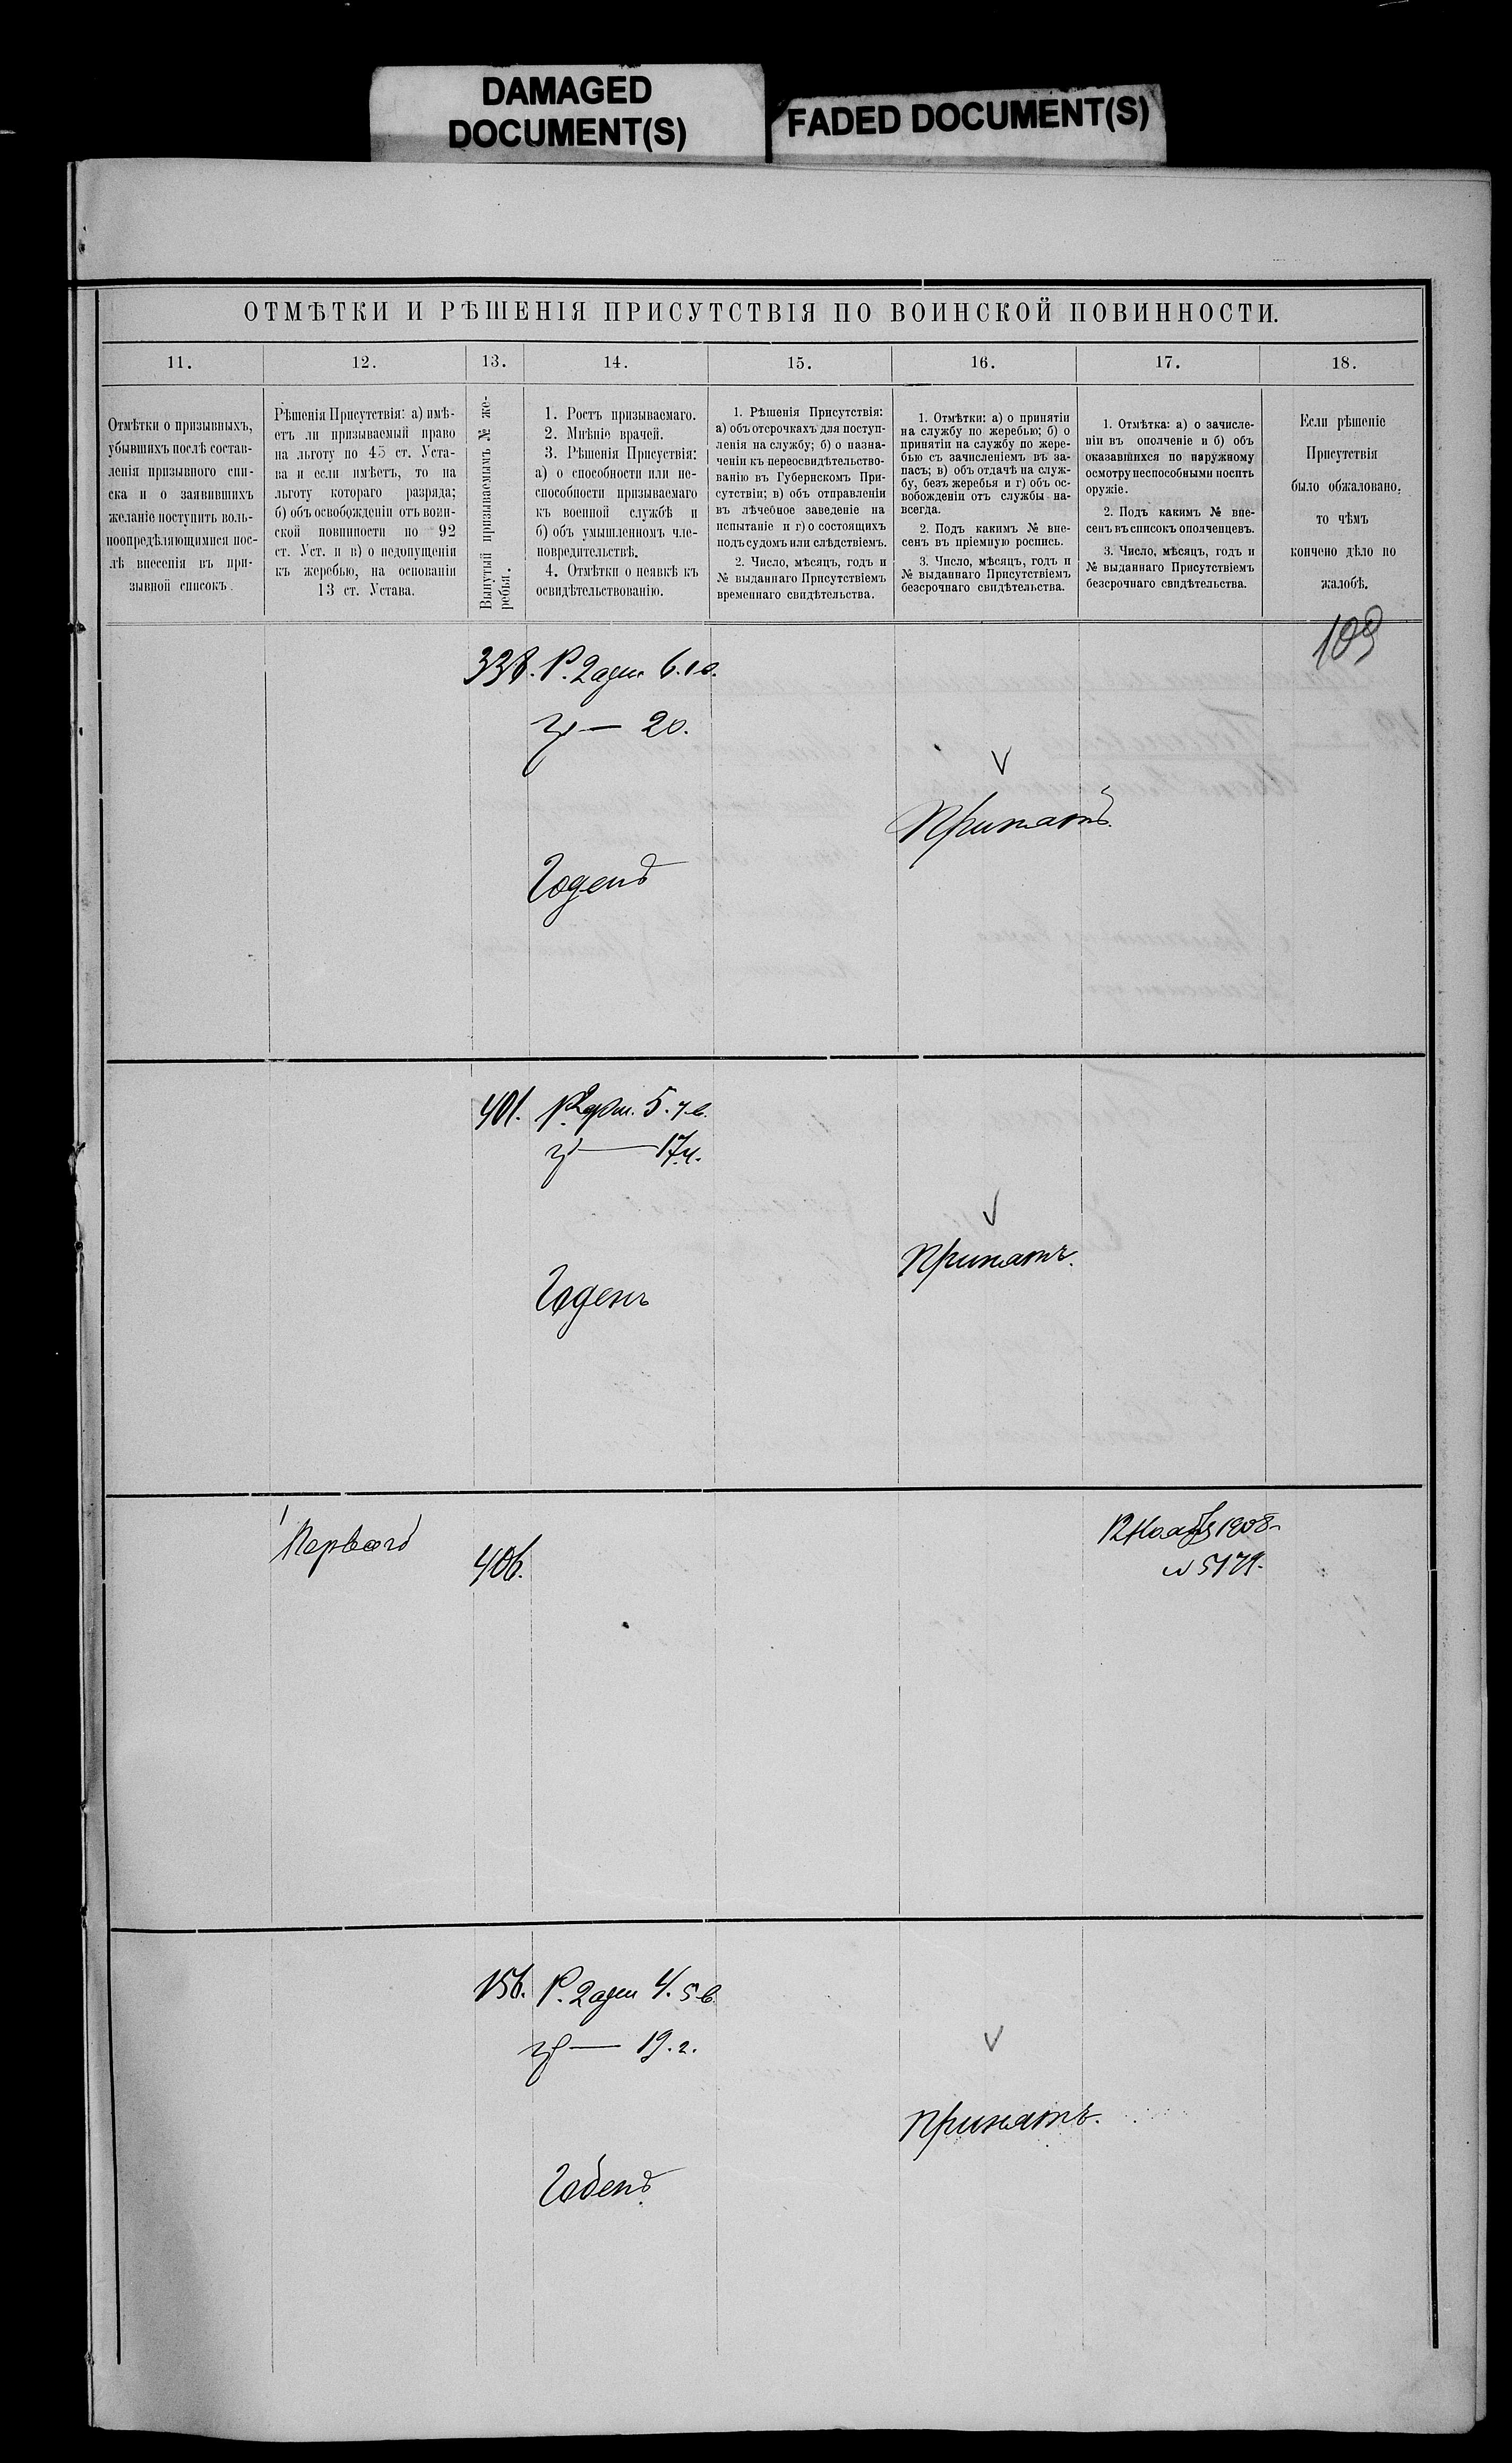 DAMAGED
DOCUMENT(S)
FADED DOCUMENT(S)
ОТМѢТКИ И РѢШЕНІЯ ПРИСУТСТВІЯ ПО ВОИНСКОЙ ПОВИННОСТИ.
11.
12.
13.
14.
15.
16.
17.
18.
Отмѣтки о призывныхъ,
убывшихъ послѣ состав-
ленія призывного спи-
ска и о заявившихъ
желаніе поступить воль-
ноопредѣляющимися пос-
лѣ внесенія въ при-
зывной списокъ.
Рѣшенія Присутствія: а) имѣ-
етъ ли призываемый право
на льготу по 45 ст. Уста-
ва и если имѣетъ, то на
льготу котораго разряда;
б) объ освобожденіи отъ воин-
ской повинности по 92
ст. Уст. и в) о недопущеніи
къ жеребью, на основаніи
13 ст. Устава.
Вынутый призываемымъ № же-
ребья.
1. Ростъ призываемаго.
2. Мнѣніе врачей.
3. Рѣшенія Присутствія:
а) о способности или не-
способности призываемаго
къ военной службѣ и
б) объ умышленномъ чле-
новредительствѣ.
4. Отмѣтки о неявкѣ къ
освидѣтельствованію.
1. Рѣшенія Присутствія:
а) объ отсрочкахъ для поступ-
ленія на службу; б) о назна-
ченіи къ переосвидѣтельство-
ванію въ Губернскомъ При-
сутствіи; в) объ отправленіи
въ лѣчебное заведеніе на
испытаніе и г) о состоящихъ
подъ судомъ или слѣдствіемъ.
2. Число, мѣсяцъ, годъ и
№ выданнаго Присутствіемъ
временнаго свидѣтельства.
1. Отмѣтки: а) о принятіи
на службу по жеребью; б) о
принятіи на службу по жере-
бью съ зачисленіемъ въ за-
пасъ; в) объ отдачѣ на служ-
бу, безъ жеребья и г) объ ос-
вобожденіи отъ службы на-
всегда.
2. Подъ какимъ № вне-
сенъ въ пріемную роспись.
3. Число, мѣсяцъ, годъ и
№ выданнаго Присутствіемъ
безсрочнаго свидѣтельства.
1. Отмѣтка: а) о зачисле-
ніи въ ополченіе и б) объ
оказавшихся по наружному
осмотру неспособными носить
оружіе.
2. Подъ какимъ № вне-
сенъ въ списокъ ополченцевъ.
3. Число, мѣсяцъ, годъ и
№ выданнаго Присутствіемъ
безсрочнаго свидѣтельства.
Если рѣшеніе
Присутствія
было обжаловано,
то чѣмъ
кончено дѣло по
жалобѣ.
109
338. Р. 2 арш 6.
гр — 20.
Принятъ.
Годенъ
401. Р. 2 арш. 5. 7 в.
гр — 17 ч.
Принятъ.
Годенъ
Перваго
406.
12 Ноября 1908
№ 5179.
156. Р. 2 арш 4. 5 в.
гр — 19. 2.
принятъ.
Годенъ